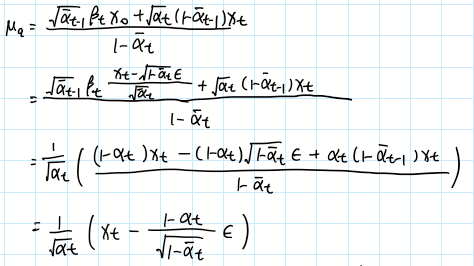 μ_q = \frac{\sqrt{\bar{α}_{t-1}} β_t x_0 + \sqrt{α_t} (1-\bar{α}_{t-1}) x_t}{1-\bar{α}_t}
= \frac{\sqrt{\bar{α}_{t-1}} β_t \frac{x_t - \sqrt{1-\bar{α}_t} ε}{\sqrt{\bar{α}_t}} + \sqrt{α_t} (1-\bar{α}_{t-1}) x_t}{1-\bar{α}_t}
= \frac{1}{\sqrt{α_t}} ( \frac{(1-α_t) x_t - (1-α_t) \sqrt{1-\bar{α}_t} ε + α_t (1-\bar{α}_{t-1}) x_t}{1-\bar{α}_t} )
= \frac{1}{\sqrt{α_t}} ( x_t - \frac{1-α_t}{\sqrt{1-\bar{α}_t}} ε )